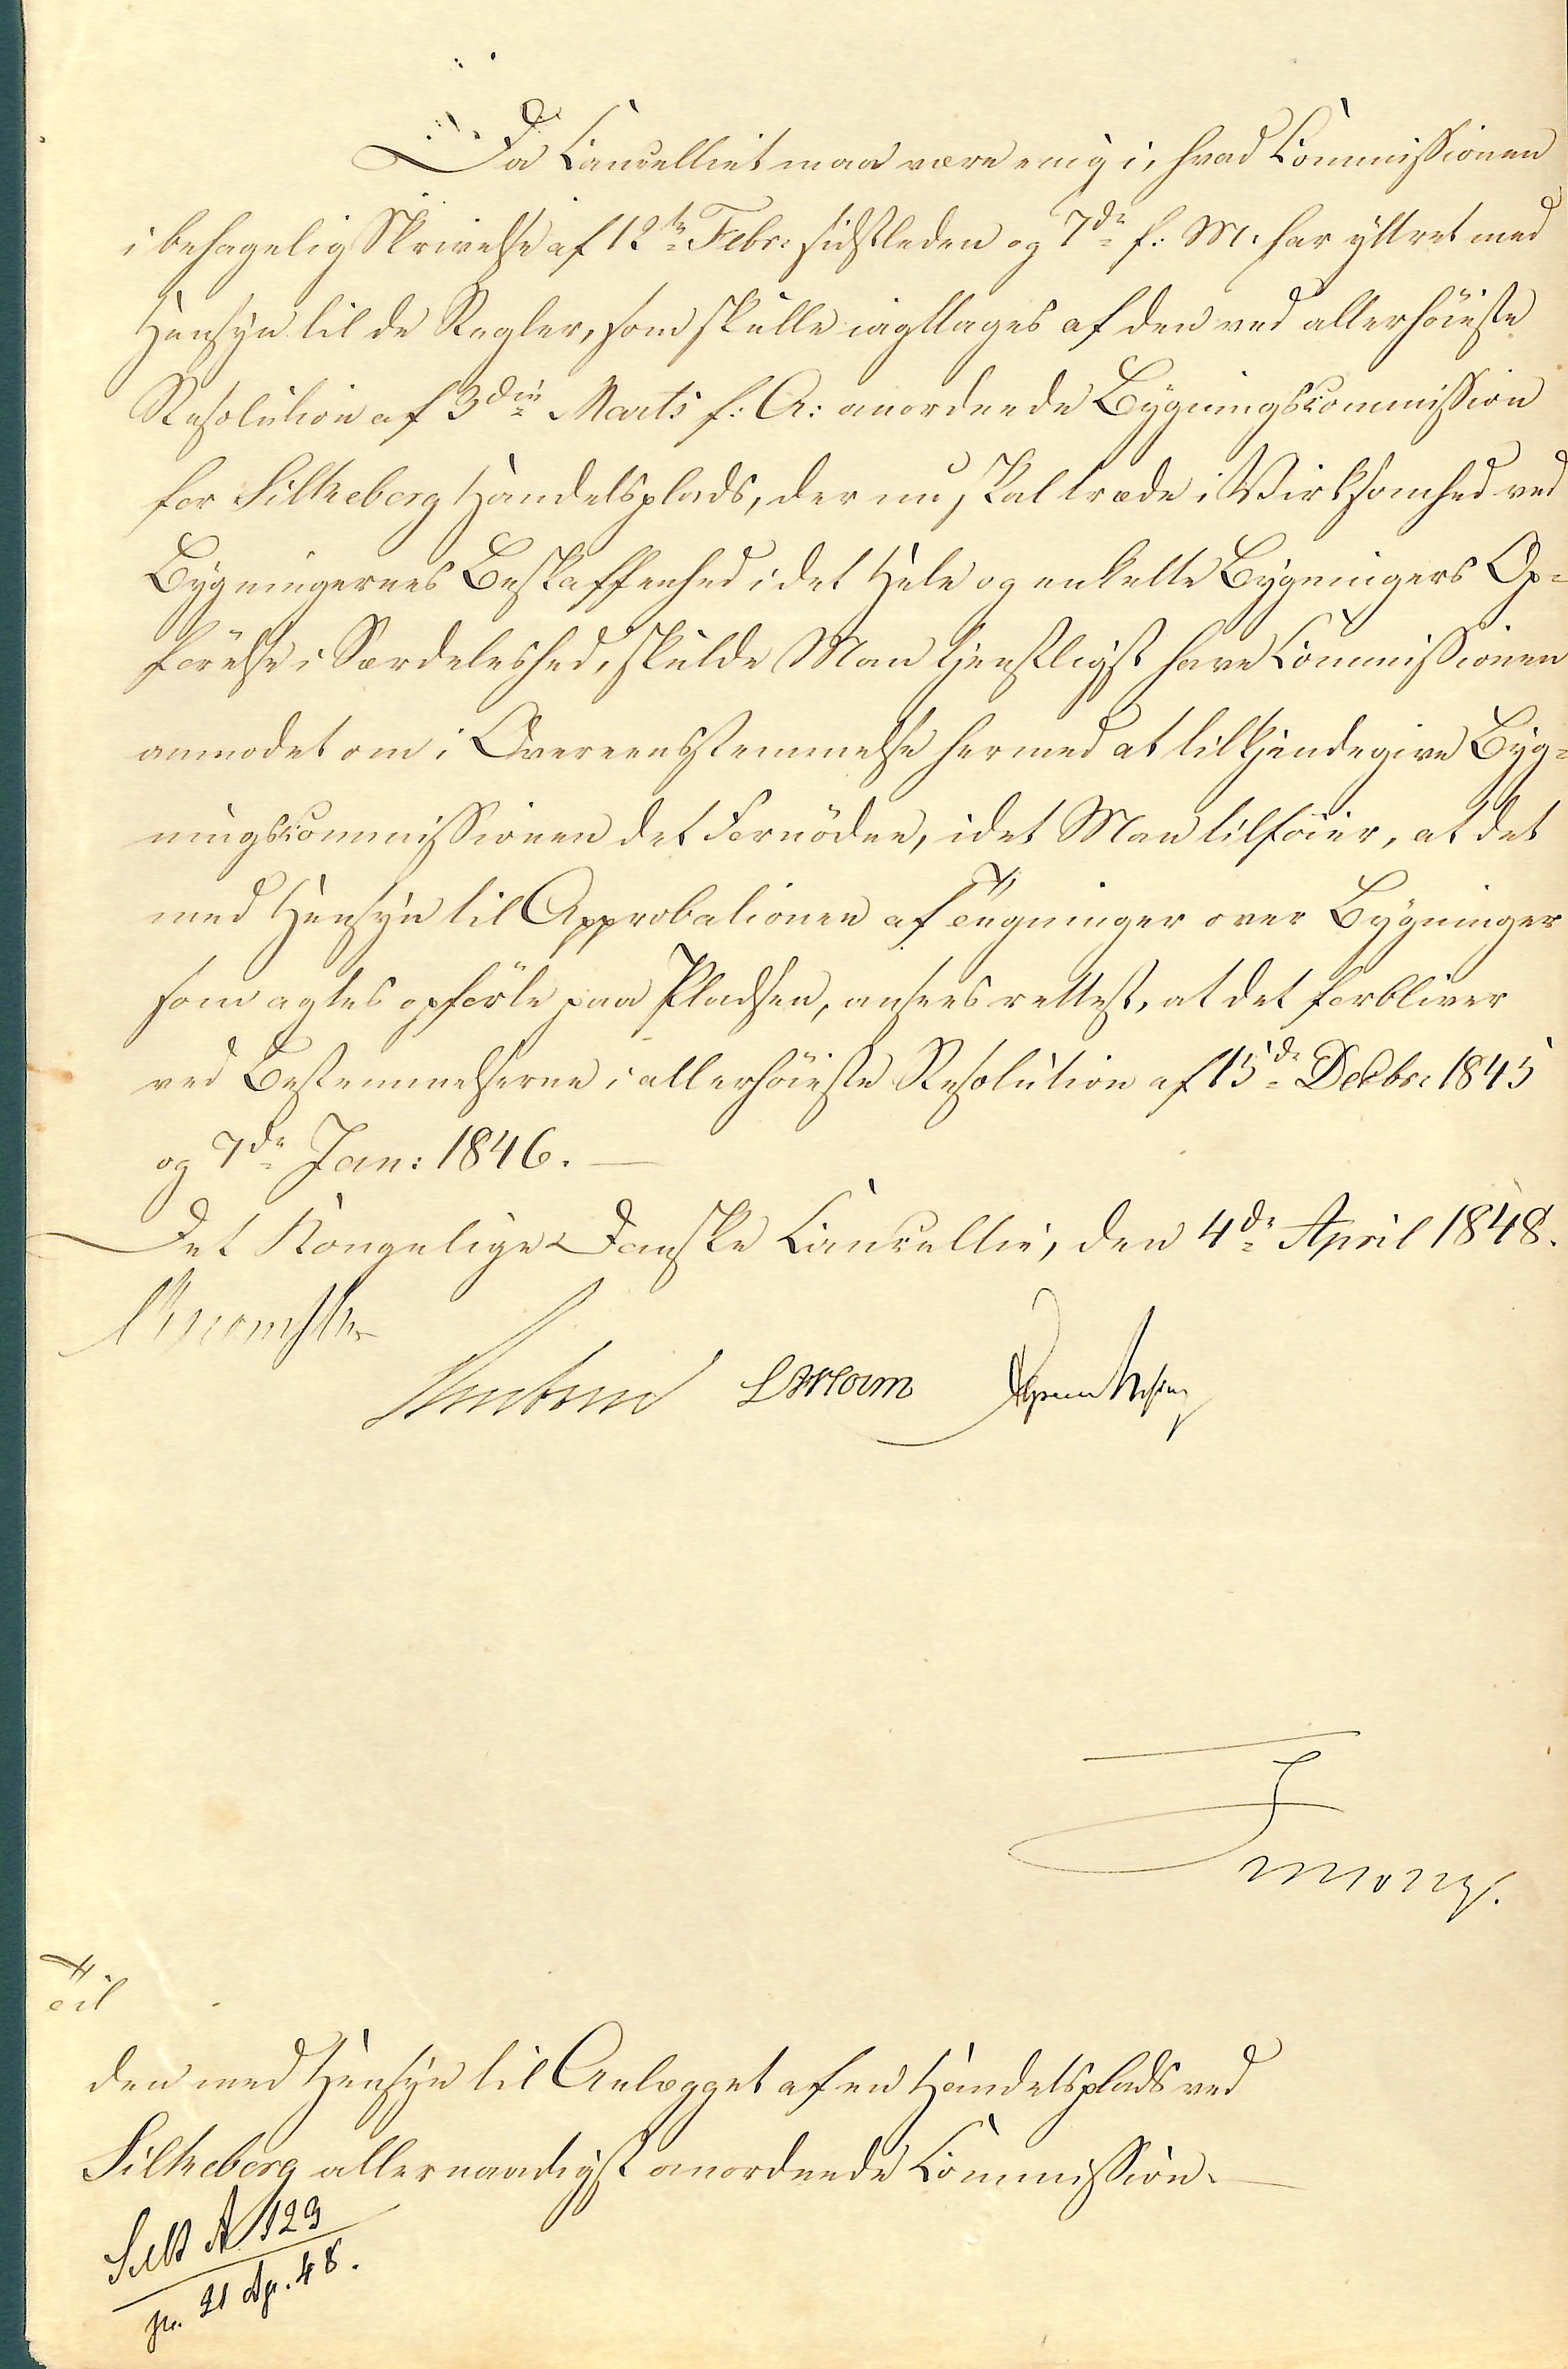 Da Cancelliet maa være enig i, hvad Commissionen
i behagelig Skrivelse af 12te Febr: sidstleden og 7de f: M: har yttret med
Hensyn til de Regler, som skulle iagttages af den ved allerhöieste
Resolution af 3die Marts f: A: anordnede Bygningscommission
for Silkeborg Handelsplads, der nu skal træde i Virksomhed ved
Bygningernes Beskaffenhed i det Hele og enkelte Bygningers Op=
förelse i Særdeleshed, skulde Man tjenstligst have Commissionen
anmodet om i Overeensstemmelse hermed at tilkjendegive Byg=
ningscommissionen det Fornödne, idet Man tilföier, at det
med Hensyn til Approbationen af Tegninger over Bygninger
som agtes opförte paa Pladsen, ansees rettest, at det forbliver
ved Bestemmelserne i allerhöieste Resolution af 15de Decbr: 1845
og 7de Jan: 1846. —
Det Kongelige Danske Cancellie, den 4de April 1848.
Til
den med Hensyn til Anlægget af en Handelsplads ved
Silkeborg allernaadigst anordnede Commission. —
Silk A 129
pr. 21 Ap. 48.